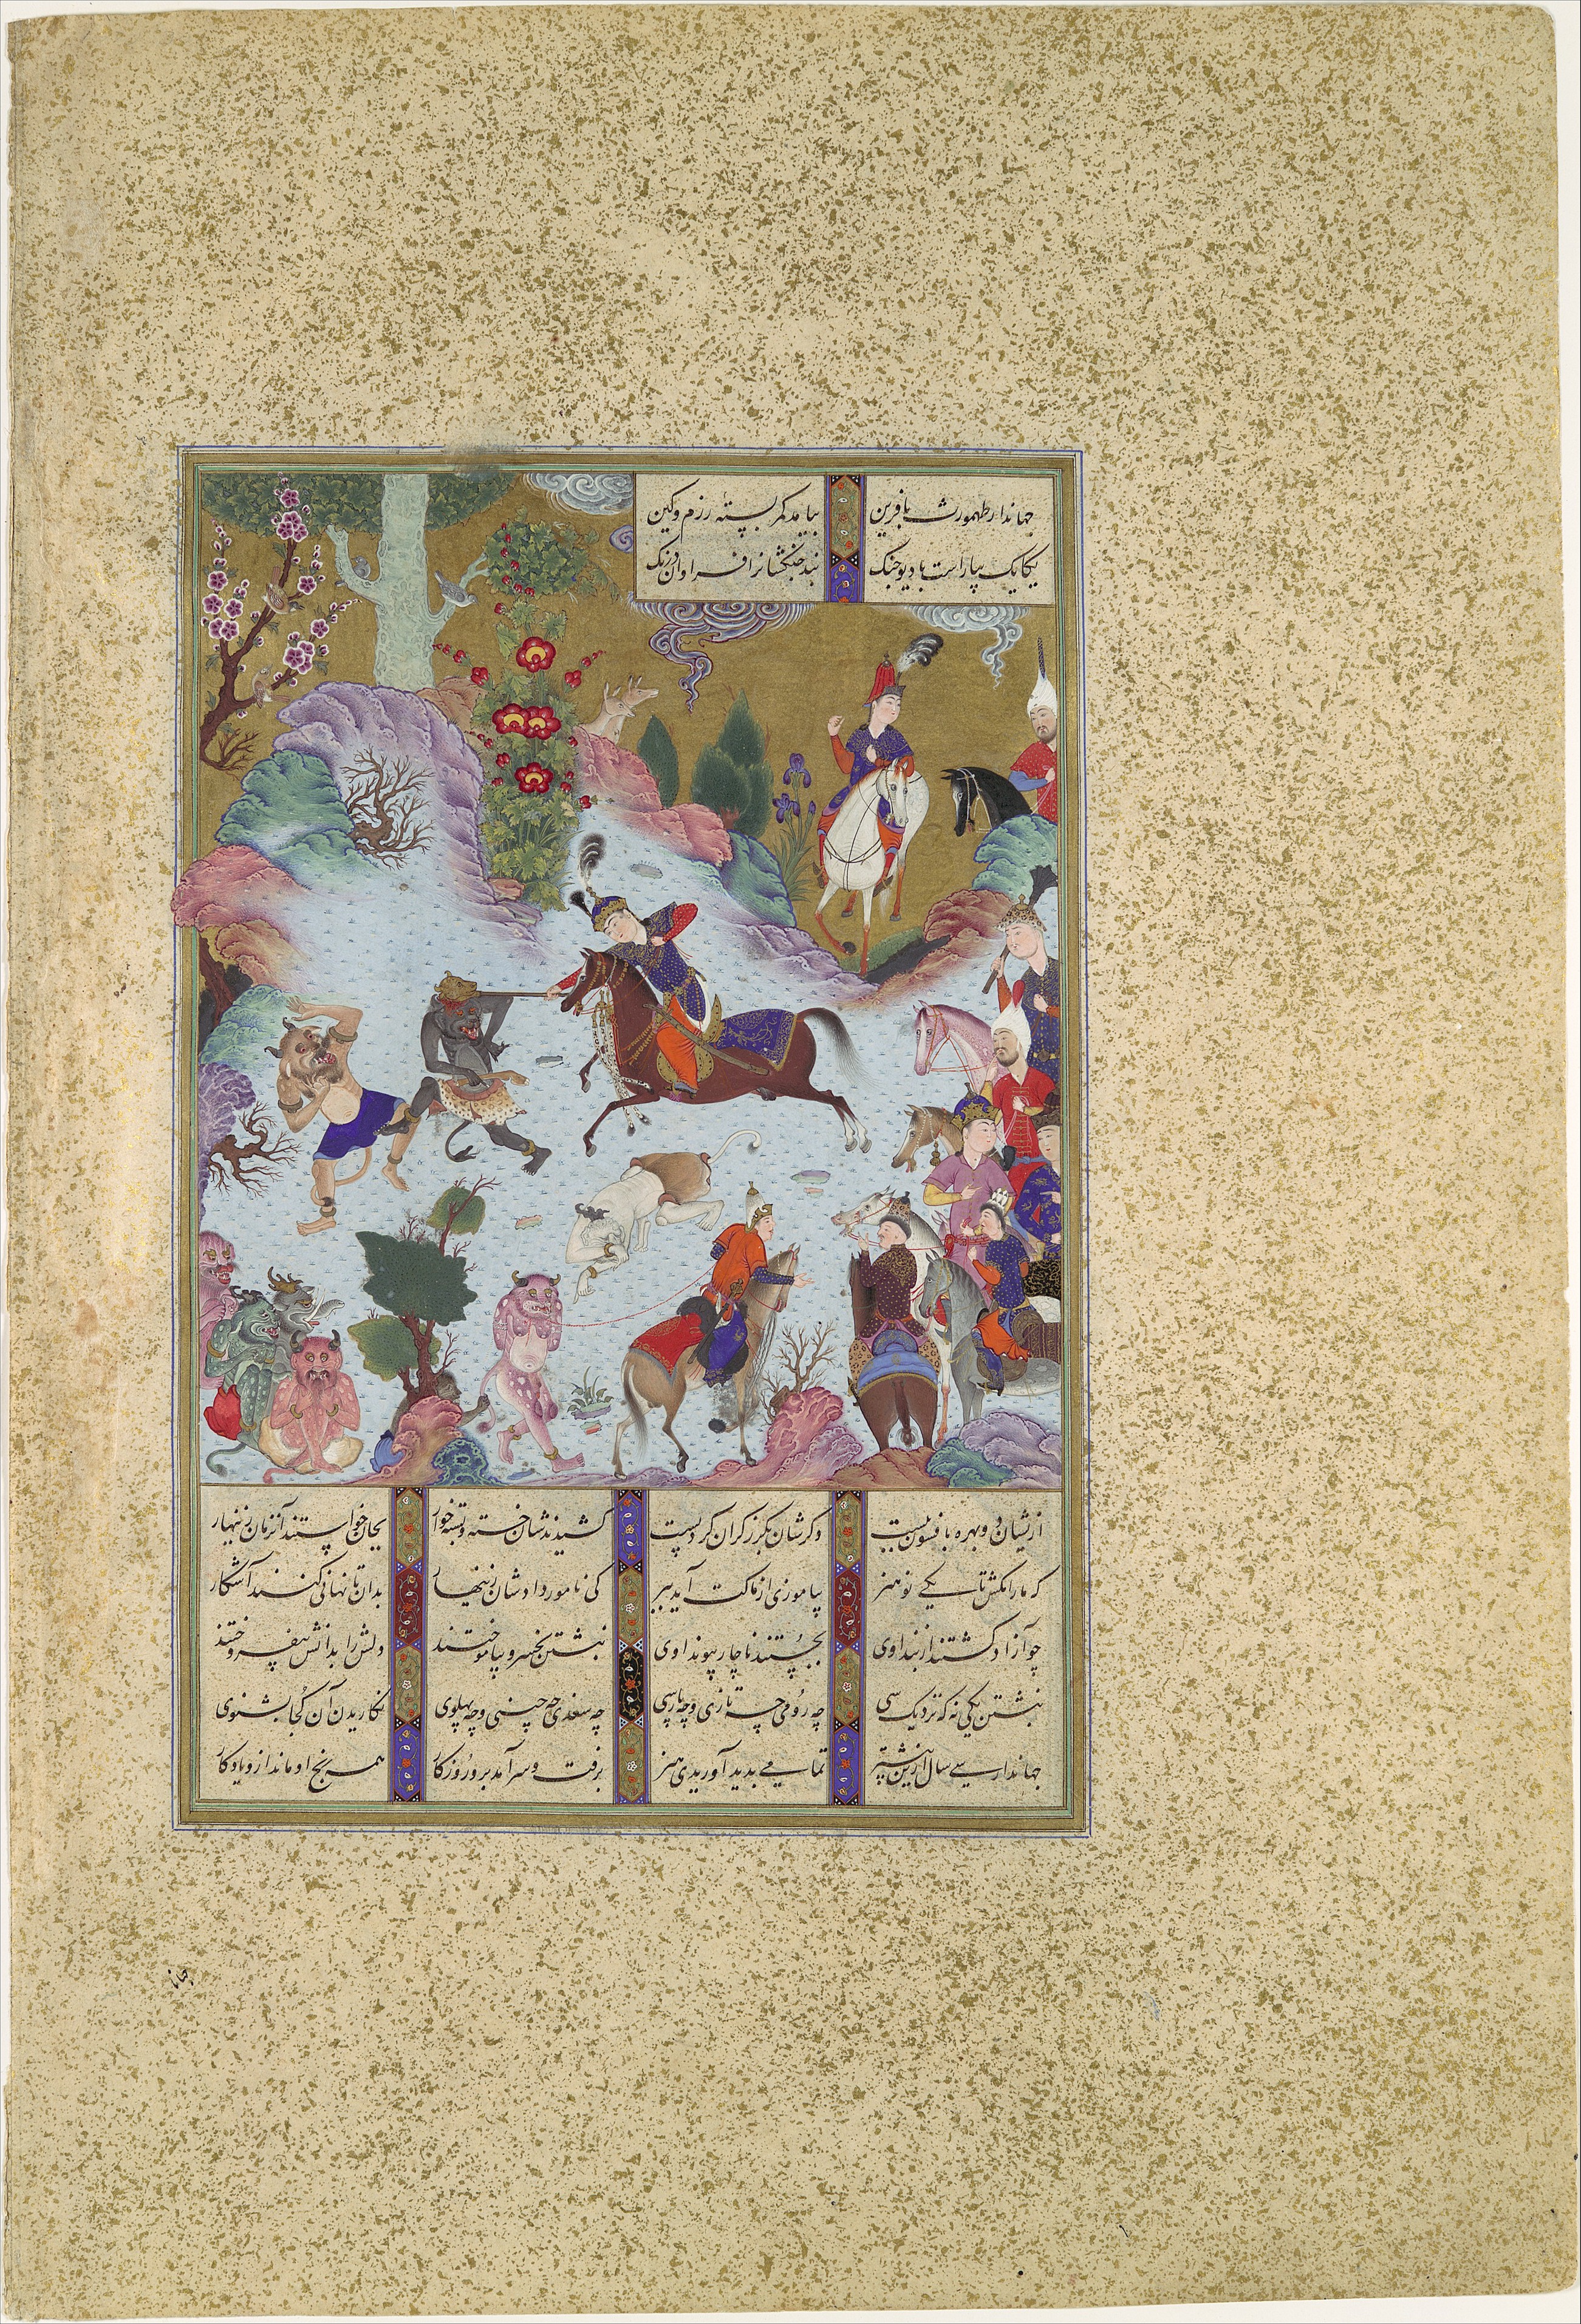 جهاندار طهمورث بافرین بیامد کمر بسته رزم و کین
یکایک بیاراست با دیو جنک نبد جنکشانرا فراوان درنک
ازیشان دو بهره بافسون ببست دکرشان بکرز کران کرد پست کشیدندشان خسته و بسته خوار بجان خواستند آنزمان زینهار
که ما را مکش تا یکی نو هنر بیاموزی از ماکت آید ببر کی نامور دادشان زینهار بدان تا نهانی کنند آشکار
چو آزاد کشتند از بند اوی بجستند ناچار پیوند اوی نبشتن بخسرو بیاموختند دلش را بدانش بیفروختند
نبشتن یکی نه که نزدیک سی چه رومی چه تازی و چه پارسی چه سغدی چه چینی و چه پهلوی نکاریدن آن کجا بشنوی
جهاندار سی سال ازین بیشتر پدید آوریدی هنر برفت و سرآمد برو روزکار همه رنج او ماند ازو یادکار